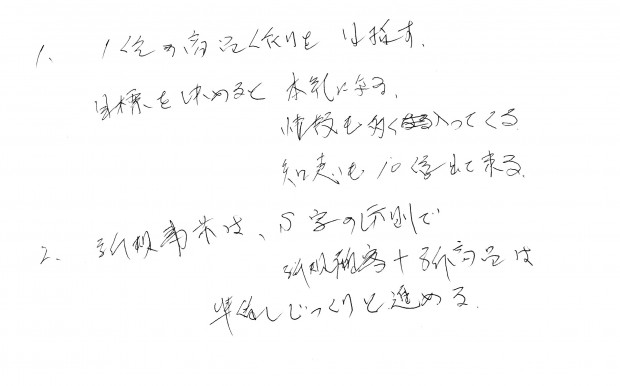 1. 1億の商品作りを目指す.
目標を決めると本気になる.
情報も多く入ってくる
知恵も10倍出て来る.
2. 新規事業は、S字の法則で
新規顧客+新商品は
準備しじっくりと進める.